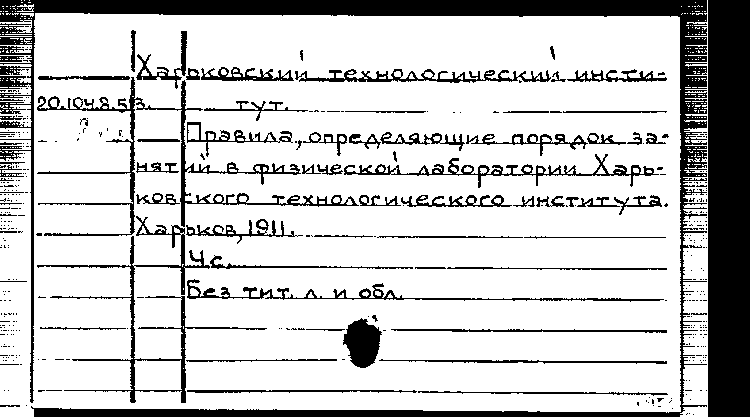 Харьковский технологический инсти-
20.104.8.513. тут.
Правила, определяющие порядок за-
нятий в физической лаборатории Харь-
ковского технологического института.
Харьков, 1911.
4 с.
Без тит. л. и обл.